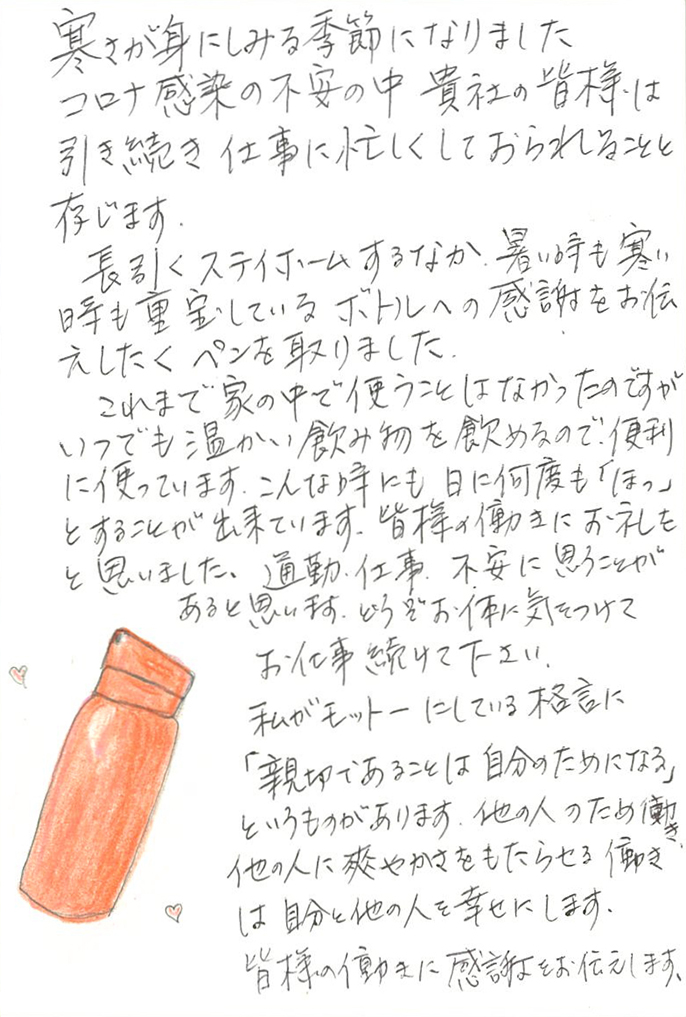 寒さが身にしみる季節になりました
コロナ感染の不安の中 貴社の皆様は
引き続き仕事に忙しくしておられることと
存じます.
長引くステイホームするなか、暑い時も寒い
時も重宝しているボトルへの感謝をお伝
えしたくペンを取りました.
これまで家の中で使うことはなかったのですが
いつでも温かい飲み物を飲めるので、便利
に使っています.こんな時にも日に何度も「ほっ」
とすることが出来ています.皆様の働きにお礼した
と思いました、通勤、仕事、不安に思うことが
あると思います.どうぞお体に気をつけて
お仕事続けて下さい.
私がモットーにしている格言に
「親切であることは自分のためになる」
というものがあります.他の人のため働き、
他の人に爽やかさをもたらせる働き
は自分と他の人を幸せにします.
皆様の働きに感謝をお伝えします、